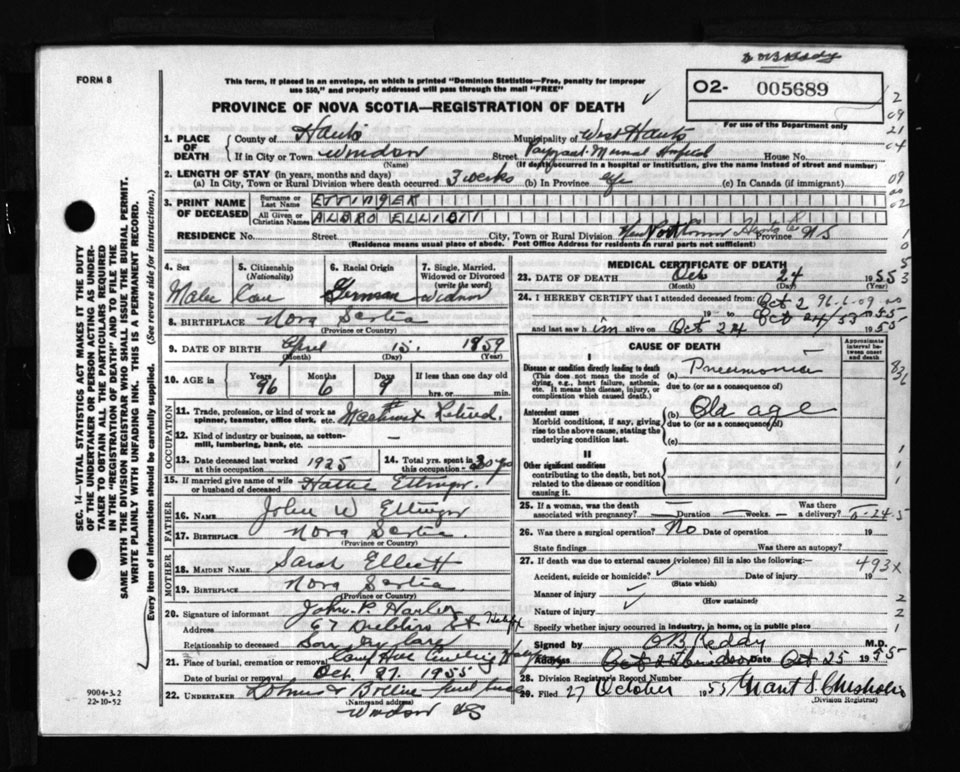 FORM 8
This form, if placed in an envelope, on which is printed "Dominion Statistics—Free, penalty for improper
use $50," and properly addressed will pass through the mail "FREE"
PROVINCE OF NOVA SCOTIA—REGISTRATION OF DEATH
02- 005689
For use of the Department only
1. PLACE OF DEATH
County of Hants Municipality of West Hants
If in City or Town Windsor Street Payzant Memorial Hospital House No.
(Name) (If death occurred in a hospital or institution, give the name instead of street and number)
2. LENGTH OF STAY (in years, months and days)
(a) In City, Town or Rural Division where death occurred 3 weeks (b) In Province life (c) In Canada (if immigrant)
3. PRINT NAME OF DECEASED
Surname or Last Name ETTINGER
All Given or Christian Names ALBRO ELLIOTT
RESIDENCE No. Street City, Town or Rural Division Hants Co Province NS
(Residence means usual place of abode. Post Office Address for residents in rural parts not sufficient)
4. Sex Male
5. Citizenship (Nationality) Can
6. Racial Origin German
7. Single, Married, Widowed or Divorced (write the word) Widower
8. BIRTHPLACE Nova Scotia
(Province or Country)
9. DATE OF BIRTH April 15 1859
(Month) (Day) (Year)
10. AGE in Years 96 Months 6 Days 9 If less than one day
hrs. or min.
OCCUPATION
11. Trade, profession, or kind of work as
spinner, teamster, office clerk, etc. Retired.
12. Kind of industry or business, as cotton-
mill, lumbering, bank, etc. —
13. Date deceased last worked at this occupation 1925
14. Total yrs. spent in this occupation 30 yrs
15. If married give name of wife
or husband of deceased Hattie Ettinger.
FATHER
16. NAME John W Ettinger
17. BIRTHPLACE Nova Scotia
(Province or Country)
MOTHER
18. MAIDEN NAME Sarah Elliott
19. BIRTHPLACE Nova Scotia
(Province or Country)
20. Signature of informant John P.
Address 67 St Halifax
Relationship to deceased
21. Place of burial, cremation or removal Camp Hill
Date of burial or removal Oct. 27. 1955
22. UNDERTAKER
(Name and address)
Windsor NS
MEDICAL CERTIFICATE OF DEATH
23. DATE OF DEATH Oct 24 1955
(Month) (Day) (Year)
24. I HEREBY CERTIFY that I attended deceased from: Oct 2 96-6-09
19 to Oct 24/55 1955
and last saw him alive on Oct 24 1955
CAUSE OF DEATH
Approximate interval between onset and death
I
Disease or condition directly leading to death
(This does not mean the mode of
dying, e.g., heart failure, asthenia,
etc. It means the disease, injury, or
complication which caused death.)
(a) Pneumonia
due to (or as a consequence of)
Antecedent causes
Morbid conditions, if any, giving
rise to the above cause, stating the
underlying condition last.
(b) Old age
due to (or as a consequence of)
(c)
II
Other significant conditions
contributing to the death, but not
related to the disease or condition
causing it.
25. If a woman, was the death Was there
associated with pregnancy? Duration —weeks.— a delivery?
26. Was there a surgical operation? No Date of operation 19
State findings Was there an autopsy?
27. If death was due to external causes (violence) fill in also the following:— 493x
Accident, suicide or homicide? Date of injury 19
(State which)
Manner of injury
(How sustained)
Nature of injury
Specify whether injury occurred in industry, in home, or in public place
Signed by O B Keddy M.D.
Address Windsor Date Oct 25 1955
28. Division Registrar's Record Number
29. Filed 27 October 1955 Grant S. Chisholm
(Division Registrar)
SEC. 14—VITAL STATISTICS ACT MAKES IT THE DUTY
OF THE UNDERTAKER OR PERSON ACTING AS UNDER-
TAKER TO OBTAIN ALL THE PARTICULARS REQUIRED
IN THE "REGISTRATION OF DEATH" AND TO FILE THE
SAME WITH THE DIVISION REGISTRAR WHO SHALL ISSUE THE BURIAL PERMIT.
WRITE PLAINLY WITH UNFADING INK. THIS IS A PERMANENT RECORD.
Every item of information should be carefully supplied. (See reverse side for instructions.)
9004-3.2
22-10-52